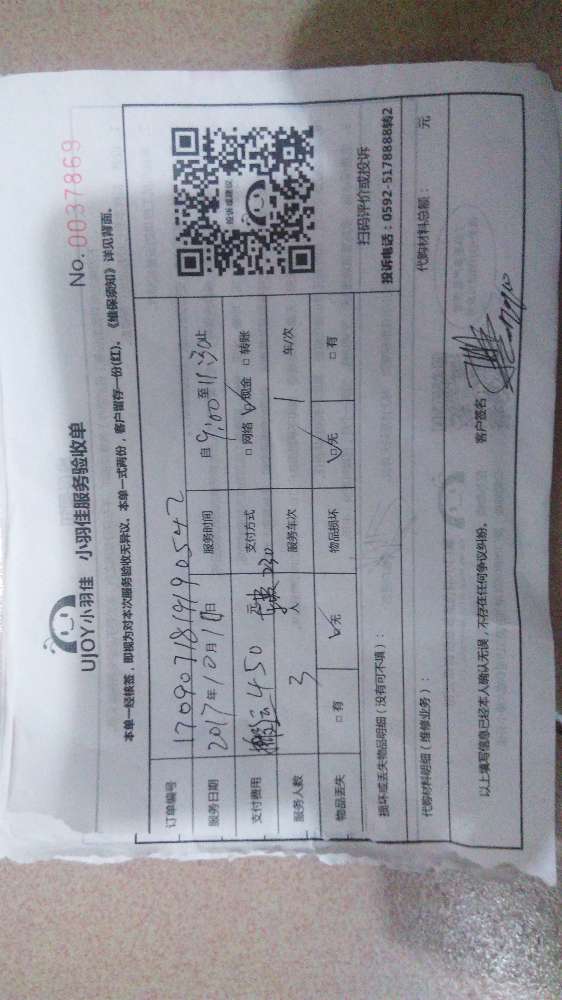 UJOY小羽佳 小羽佳服务验收单
No. 0037869
本单一经核签，即视为对本次服务验收无异议。本单一式两份，客户留存一份(红)。《维保须知》详见背面。
订单编号 170907181919190542
服务日期 2017年10月1日 服务时间 自9:00至11:30止
支付费用 搬运450元 支付方式 □网络 ☑现金 □转账
服务人数 3人 服务车次 1 车/次
物品丢失 □有 ☑无 物品损坏 ☑无 □有
投诉或建议
扫码评价或投诉
投诉电话：0592-5178888转2
损坏或丢失物品明细（没有可不填）：
代购材料明细（维修业务）： 代购材料总额： 元
以上填写信息已经本人确认无误，不存在任何争议纠纷。 客户签名